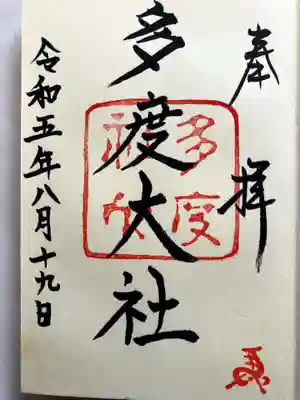 奉拝
多度大社
多度
神社
令和五年八月十九日